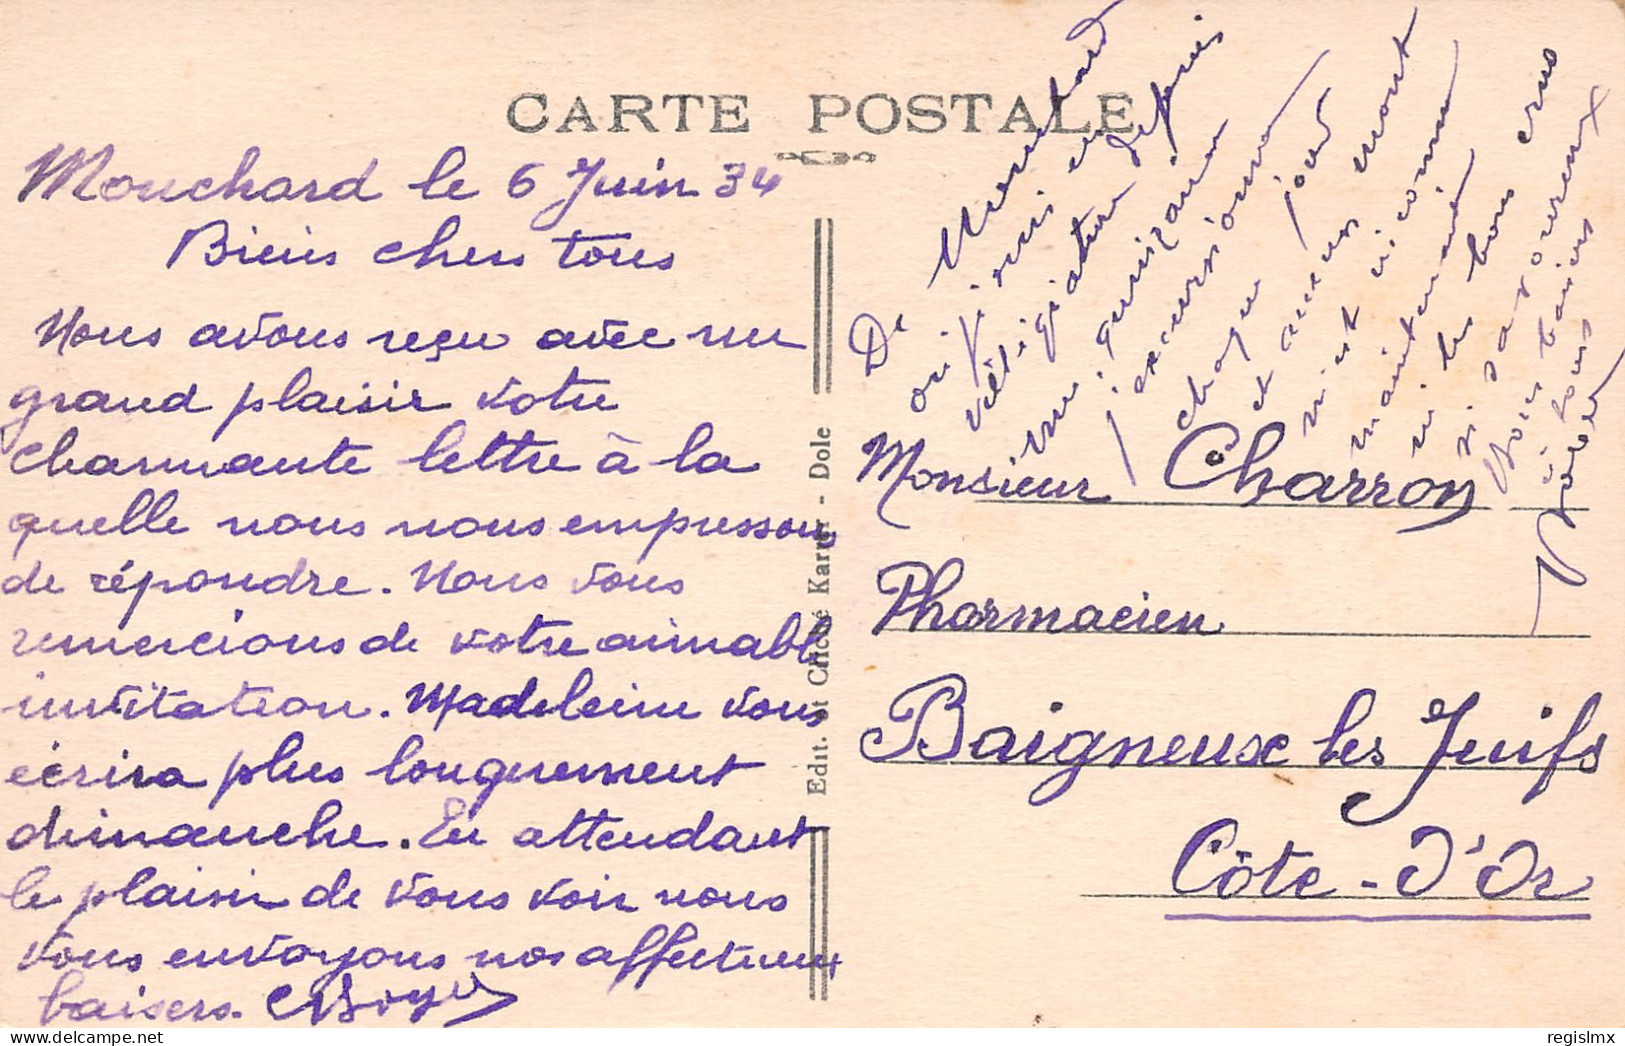 CARTE POSTALE
Mouchard le 6 Juin 34
Biens chers tous
Nous avons reçu avec un
grand plaisir votre
charmante lettre à la
quelle nous nous empressons
de répondre. Nous vous
remercions de votre aimable
invitation. Madeleine vous
écrira plus longuement
dimanche. En attendant
le plaisir de vous voir nous
vous envoyons nos affectueux
baisers.
Edit. et Cliché Karrer - Dole
De Mouchard
où je suis en
villégiature depuis
une quinzaine
j'excursionne
chaque jour
et aucun mont
m'est inconnu
maintenant
ni les bons crus
si savoureux
Bons baisers
à tous
Monsieur Charron
Pharmacien
Baigneux les Juifs
Côte-d'Or
regislmx